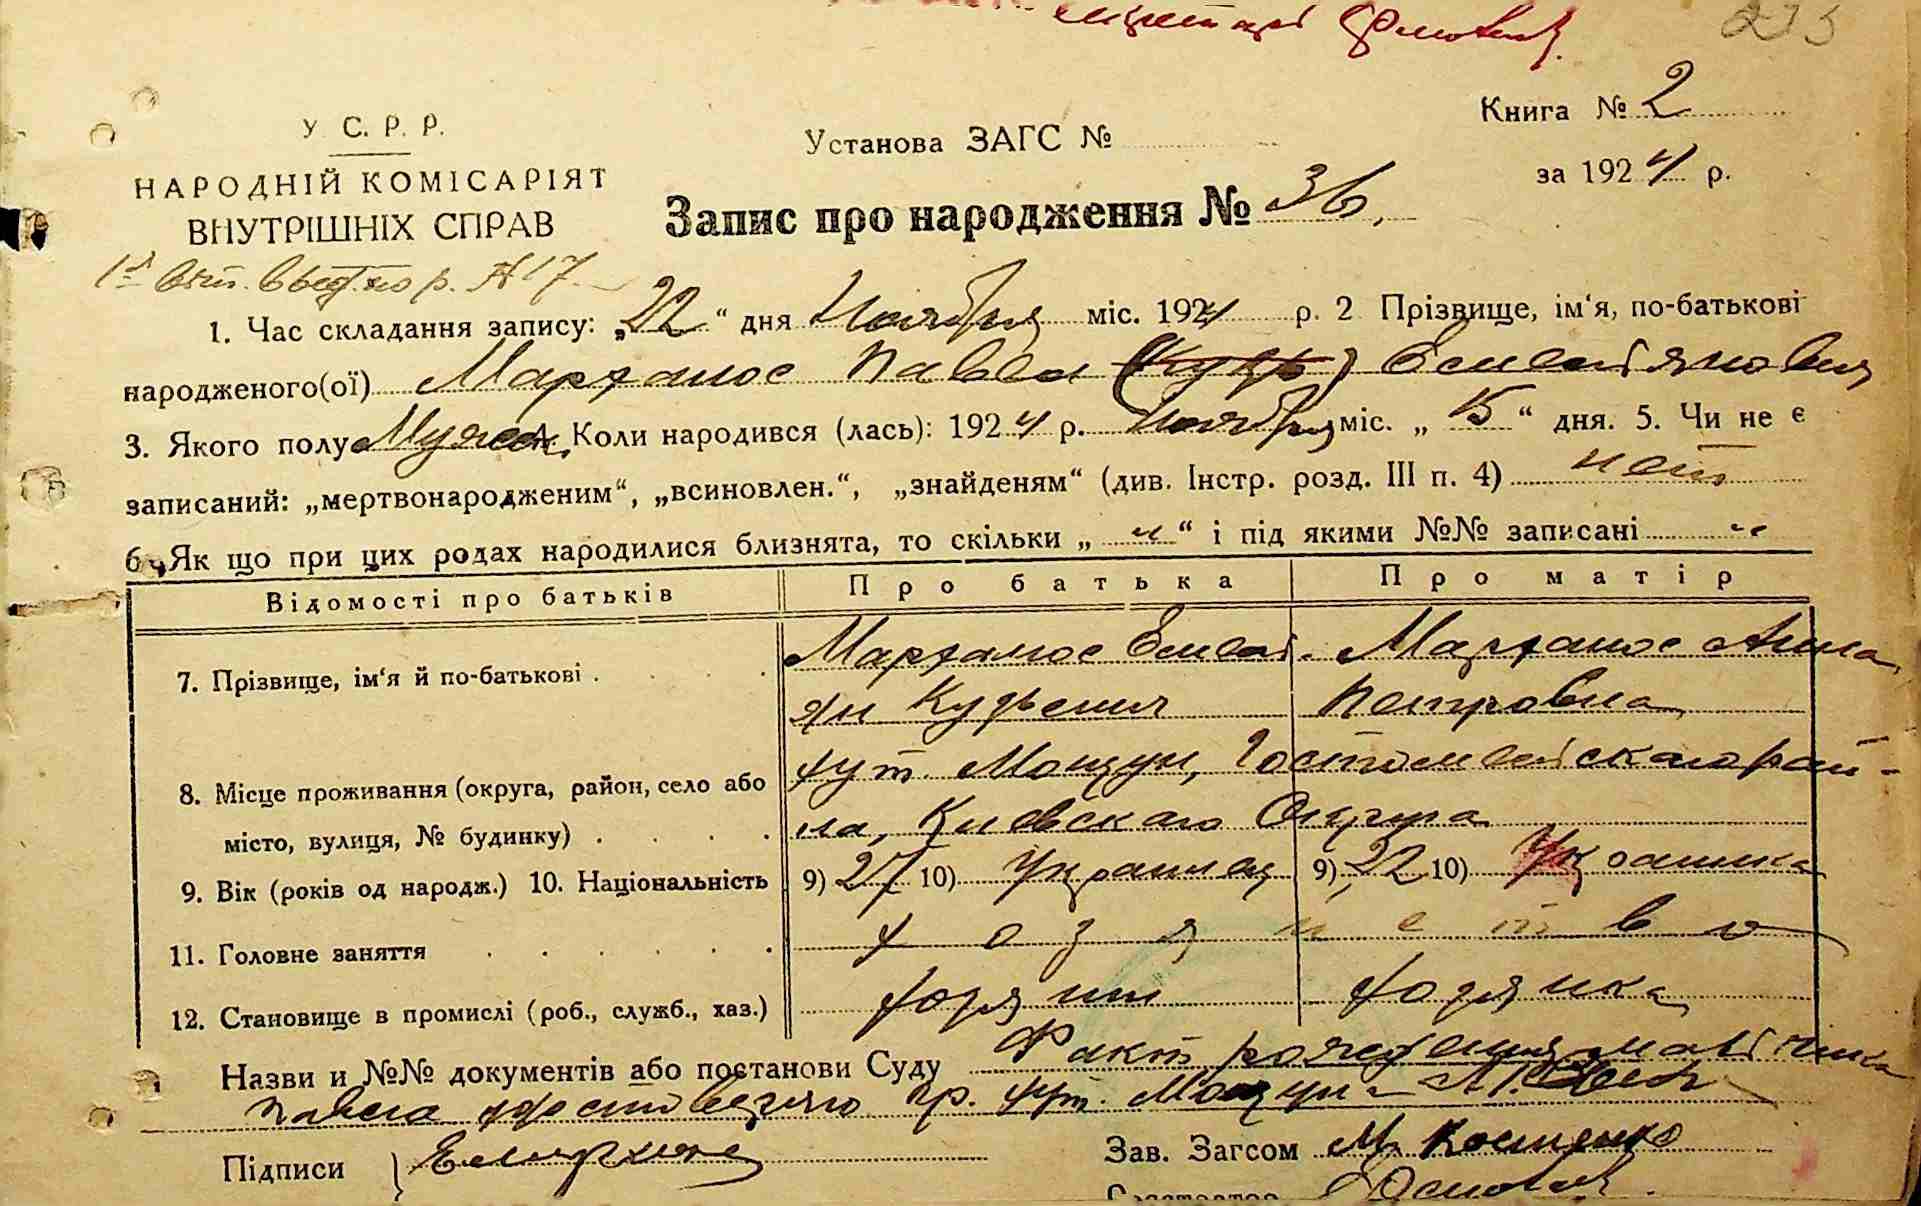 275
У. С. Р. Р.
НАРОДНІЙ КОМІСАРІЯТ
ВНУТРІШНІХ СПРАВ
Установа ЗАГС №
Книга № 2
за 1924 р.
Запис про народження № 36.
р. № 17
1. Час складання запису: „22“ дня Ноября міс. 1924 р. 2 Прізвище, ім'я, по-батькові
народженого(ої) Марханос Павел Емельянович
3. Якого полу Мужск. 4. Коли народився (лась): 1924 р. Ноября міс. „15“ дня. 5. Чи не є
записаний: „мертвонародженим“, „всиновлен.“, „знайденям“ (див. Інстр. розд. III п. 4) нет
6. Як що при цих родах народилися близнята, то скільки „ “ і під якими №№ записані
Відомості про батьків Про батька Про матір
7. Прізвище, ім'я й по-батькові Марханос Емель- Марханос Анна
ян Петровна
8. Місце проживання (округа, район, село або хут. Мощун, Гостомельского рай-
місто, вулиця, № будинку) на, Киевскаго Округа
9. Вік (років од народж.) 10. Національність 9) 27 10) Украинец 9) 22 10) Украинка
11. Головне заняття хозяйство
12. Становище в промислі (роб., служб., хаз.) хозяин хозяйка
Назви и №№ документів або постанови Суду Факт рождения мальчика
Павла удостоверяю пр. хут. Мощуна
Підписи
Зав. Загсом Костенко